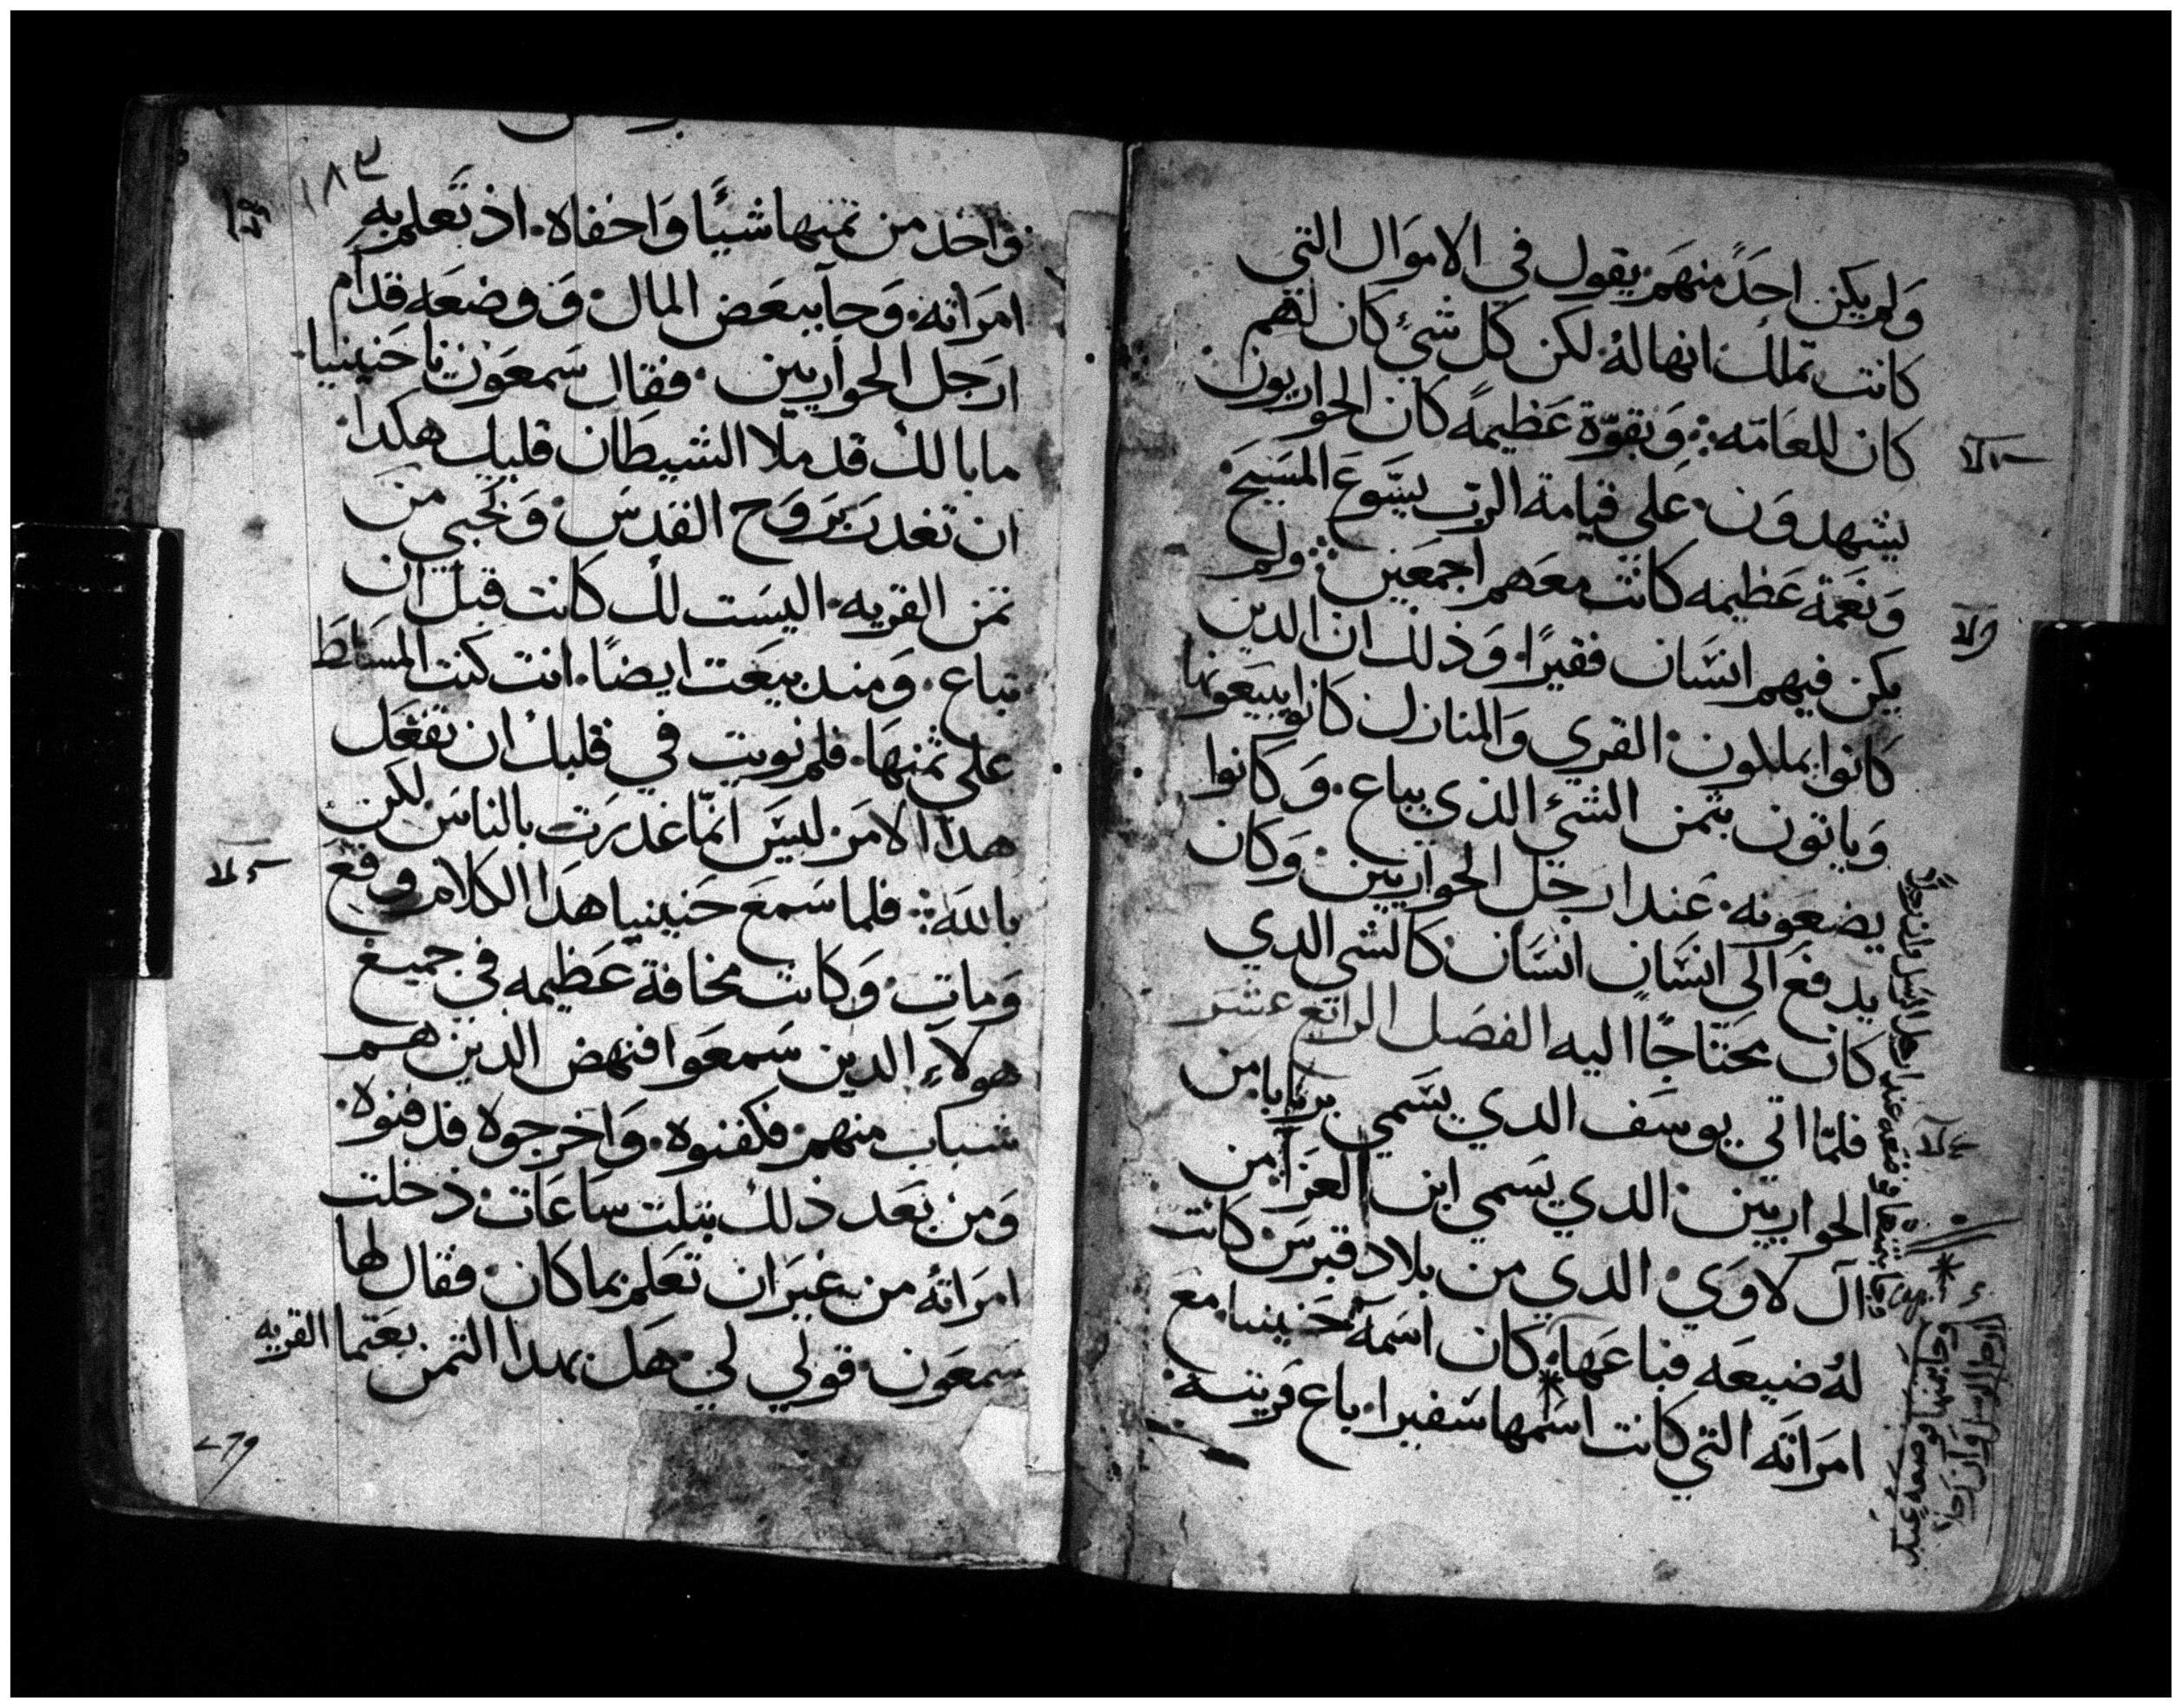 وَلم يكن احَدً منهَم يقول في الاموَال التي
كانت تملك انها لهُ لكن كل شيءٍ كان لهم
كان للعَامّه ⁘ وَبقوّة عَظيمةً كان الحواريون
يشهدوَن علي قيامة الربّ يسَّوع المسَيحَ
وَنعَمة عَظيمه كانت معَهم اجمعَين ⁘ ولم
يكن فيهم انسَان فقيرًا وَذلك ان الدين
كانوا يملكون القري وَالمنازل كانوا يبيَعونها
وَياتون بثمن الشيء الذي يباع وَكانوا
يضعَونه عَند ارجَل الحواريين وَكان
يدفعَ الي انسَانٍ انسَان كالشي الدي
كان محَتاجًا اليه الفصَل الرابَع عشرَ
فلمّا اتي يوسَف الدي يسَمي برنابا من
الحواريين الدي يسَمي ابن العَزا من
آل لاوَي الدي من بلاد قبرسَ كانت
لهُ ضيعَه فباعَها كان اسَمهُ حَنينيا معَ
امرَاته التي كانت اسَمها سَفيرا باع قريته
وَاخد من ثمنها شيئًا وَاخفاه اذ تعَلم به
امرَاته وَجآ ببعَض المال وَوضعَه قدام
ارَجل الحوَاريين فقال سَمعَون يا حَنينيا
ما بالك قد ملا الشيطان قلبك هكدا
ان تغدرَ برَوَح القدسَ وَتخبي من
ثمن القريه اليسَت لك كانت قبل ان
تباع وَمند بيعَت ايضًا انت كنت المسَلط
علي ثمنهَا فلم نويت في قلبك ان تفعَل
هدا الامرَ ليسَ انمّا غدرَت بالناسَ لكن
بالله ⁘ فلما سَمعَ حَنينيا هدَا الكلام وقعَ
وَمات وَكانت مخافة عَظيمه في جميعَ
هولاءِ الدين سَمعَوا فنهض الدين هم
شباب منهم فكفنوه وَاخرجوه فدفنوه
وَمن بعَد ذلك بتلت سَاعَات دَخلت
امرَاته من غيرَ ان تعَلم بما كان فقال لها
سَمعَون قولي لي هَل بهدا الثمن بعَتما القريه
١٨٣